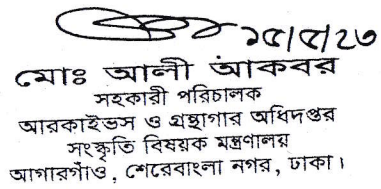 ১৫/৫/২৩
মোঃ আলী আকবর
সহকারী পরিচালক
আরকাইভস ও গ্রন্থাগার অধিদপ্তর
সংস্কৃতি বিষয়ক মন্ত্রণালয়
আগারগাঁও, শেরেবাংলা নগর, ঢাকা।